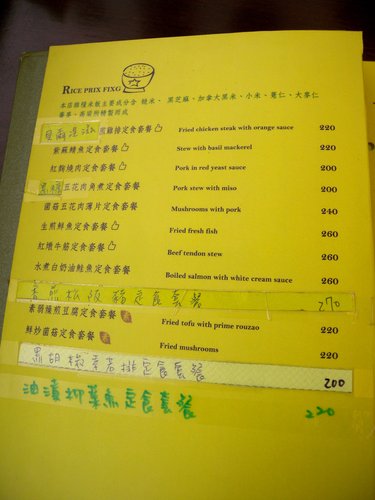 RICE PRIX FIXG
本店雜糧米飯主要成分含 糙米、 黑芝麻、加拿大黑米、小米、薏仁、大麥仁
蕎麥、燕麥所精製而成
雞排定食套餐 Fried chicken steak with orange sauce 220
紫蘇鯖魚定食套餐 Stew with basil mackerel 220
紅麴燒肉定食套餐 Pork in red yeast sauce 200
五花肉角煮定食套餐 Pork stew with miso 200
菌菇五花肉薄片定食套餐 Mushrooms with pork 240
生煎鮮魚定食套餐 Fried fresh fish 260
紅燉牛筋定食套餐 Beef tendon stew 260
水煮白奶油鮭魚定食套餐 Boiled salmon with white cream sauce 260
松阪豬定食套餐 270
煎豆腐定食套餐 Fried tofu with prime rouzao 220
鮮炒菌菇定食套餐 Fried mushrooms 220
黑胡椒 排定食套餐 200
油漬柳葉魚定食套餐 220